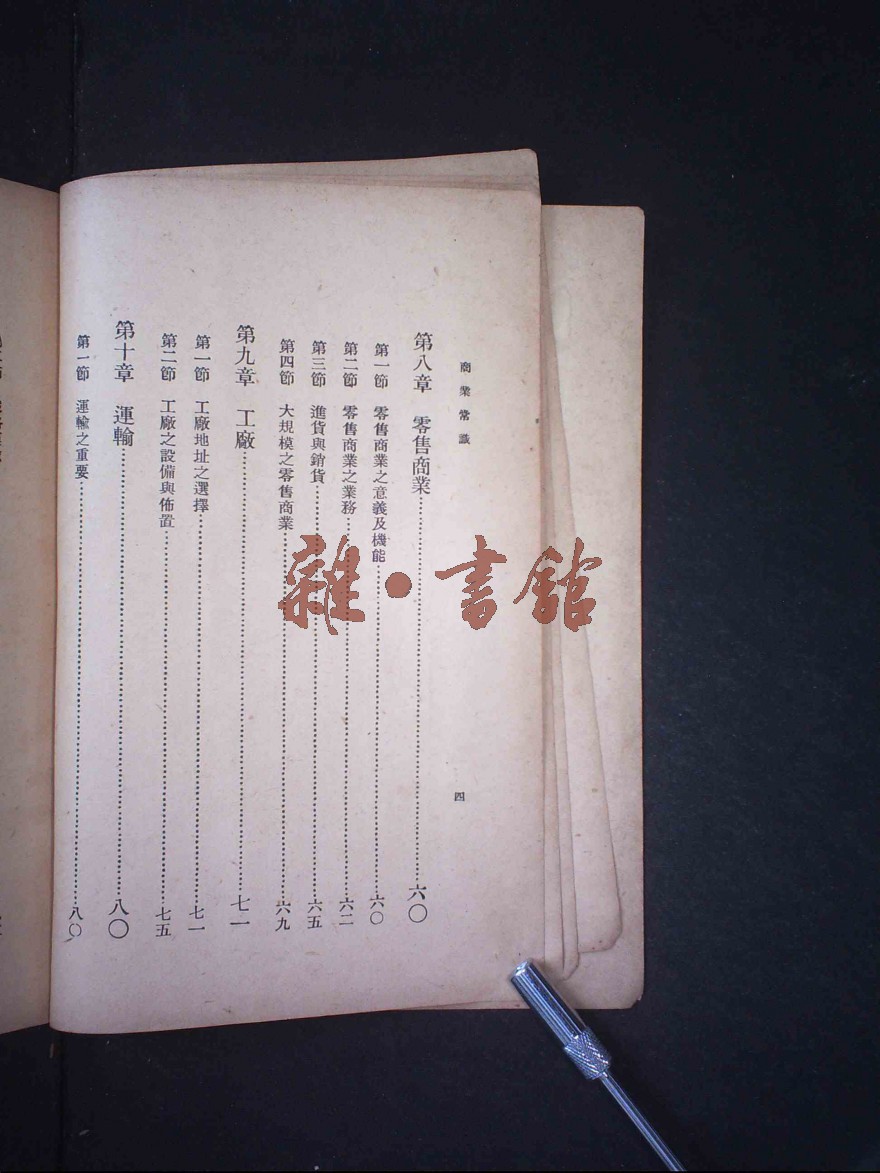 商業常識
四
第八章 零售商業……六〇
第一節 零售商業之意義及機能……六〇
第二節 零售商業之業務……六二
第三節 進貨與銷貨……六五
第四節 大規模之零售商業……六九
第九章 工廠……七一
第一節 工廠地址之選擇……七一
第二節 工廠之設備與佈置……七五
第十章 運輸……八〇
第一節 運輸之重要……八〇
雜·書館